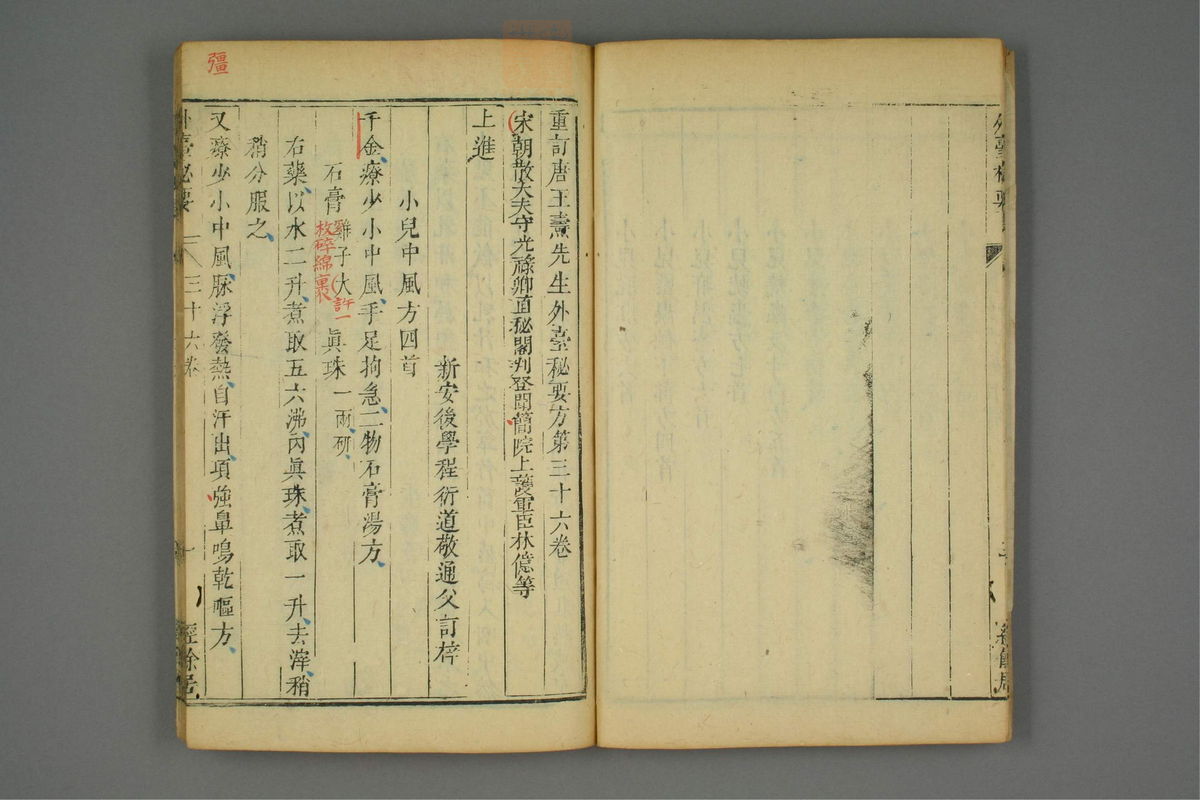 外臺秘要
重訂唐王燾先生外臺秘要方第三十六卷
宋朝散大夫守光祿卿直秘閣判登聞簡院上護軍臣林億等
上進
新安後學程衍道敬通父訂梓
小兒中風方四首
千金、療少小中風、手足拘急、二物石膏湯方、
石膏 雞子大許一枚碎綿裹 眞珠 一兩研、
右藥、以水二升、煮取五六沸、內眞珠、煮取一升、去滓、稍
稍分服之、
又療少小中風、脈浮發熱、自汗出、項強、鼻鳴乾嘔方、
外臺秘要 三十六卷 一 經餘居
彊